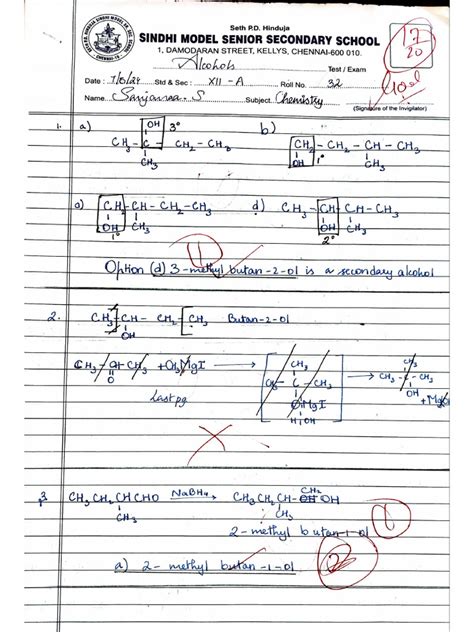 Seth P.D. Hinduja
SINDHI MODEL SENIOR SECONDARY SCHOOL
1, DAMODARAN STREET, KELLYS, CHENNAI-600 010.
17
20
Alcohols Test / Exam
Date : 7/6/24 Std & Sec : XII - A Roll No. 32
Name Sanjanaa. S Subject Chemistry
(Signature of the Invigilator)
1. a) OH 3° b)
CH3 - C - CH2 - CH3 CH2 - CH2 - CH - CH3
CH3 OH 1° CH3
c) CH2 - CH - CH2 - CH3 d) CH3 - CH - CH - CH3
OH CH3 OH CH3
1° 2°
1
Option (d) 3-methyl butan-2-ol is a secondary alcohol
2. CH3 - CH - CH2 - CH3 Butan-2-ol
OH
CH3 - C - CH3 + CH3MgI → CH3 → CH3
O CH3 - C - CH3 CH3 - C - CH3
Last pg OMgI OH
H | OH
3. CH3CH2CHCHO NaBH4 → CH3CH2CH - CH2 OH
CH3 CH3
1
2-methyl butan-1-ol
a) 2-methyl butan-1-ol
2